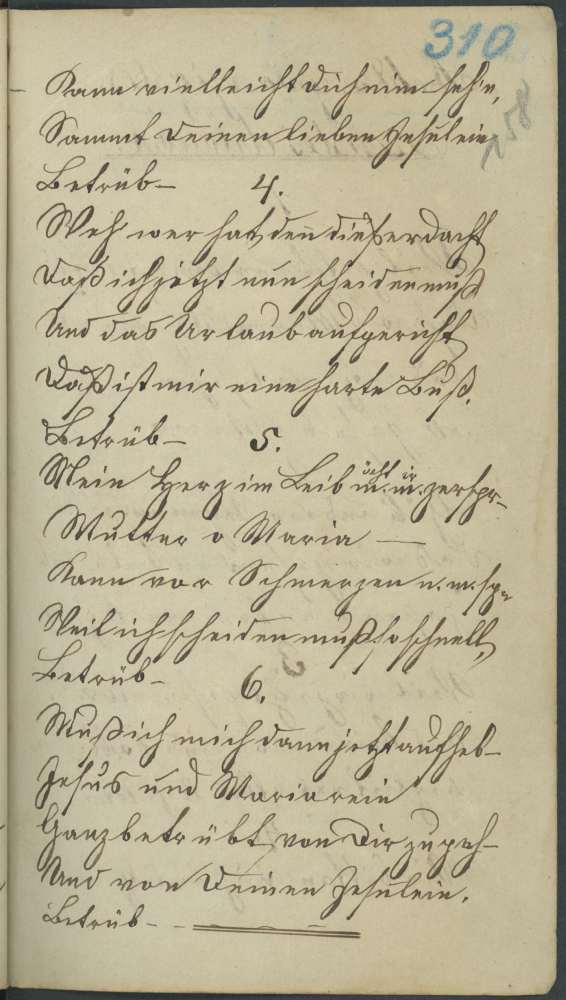 310
Kann vielleicht dich nim̄ seh'n,
58
Sammt Deinen lieben Jesulein,
Betrüb–
4.
Weh' wer hat den dieß erdacht
Daß ich jetzt nun scheiden muß
Und das Urlaub aufgericht
Daß ist mir eine harte Buß.
Betrüb–
5.
Mein Herz im Leib m. m. zerspr–
Mutter o Maria —
Kann vor Schmerzen n. m. sp–
Weil ich scheiden muß so schnell,
Betrüb–
6.
Muß ich mich dann jetzt aufheb–
Jesus und Maria rein
Ganz betrübt von Dir zu geh–
Und von Deinen Jesulein.
Betrüb–